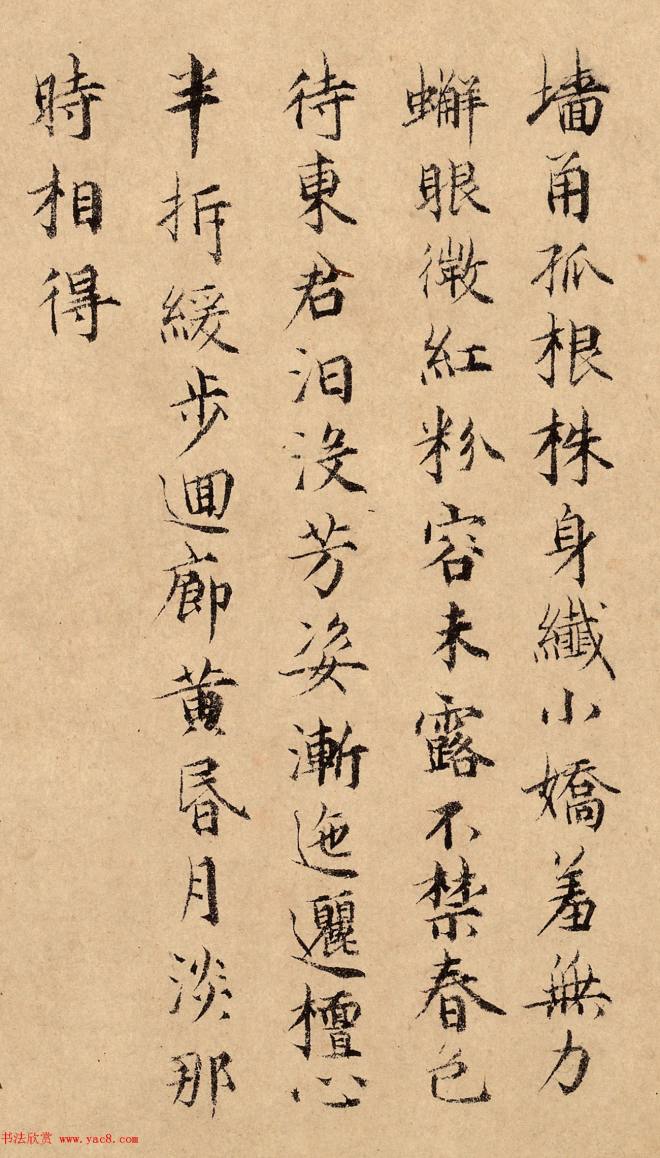 墻甪孤根株身纖小嬌羞無力
蠏眼微紅粉容未露不禁春色
待東君汩没芳姿漸迤邐檀心
半拆緩步迴廊黄昬月淡那
時相得
书法欣赏 www.yac8.com